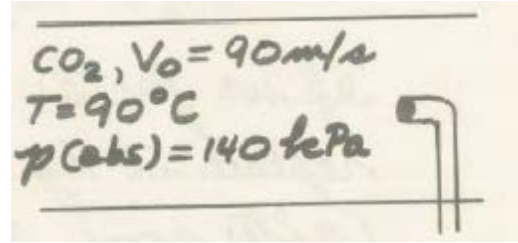 CO₂, V₀ = 90 m/s
T = 90°C
p(abs) = 140 kPa